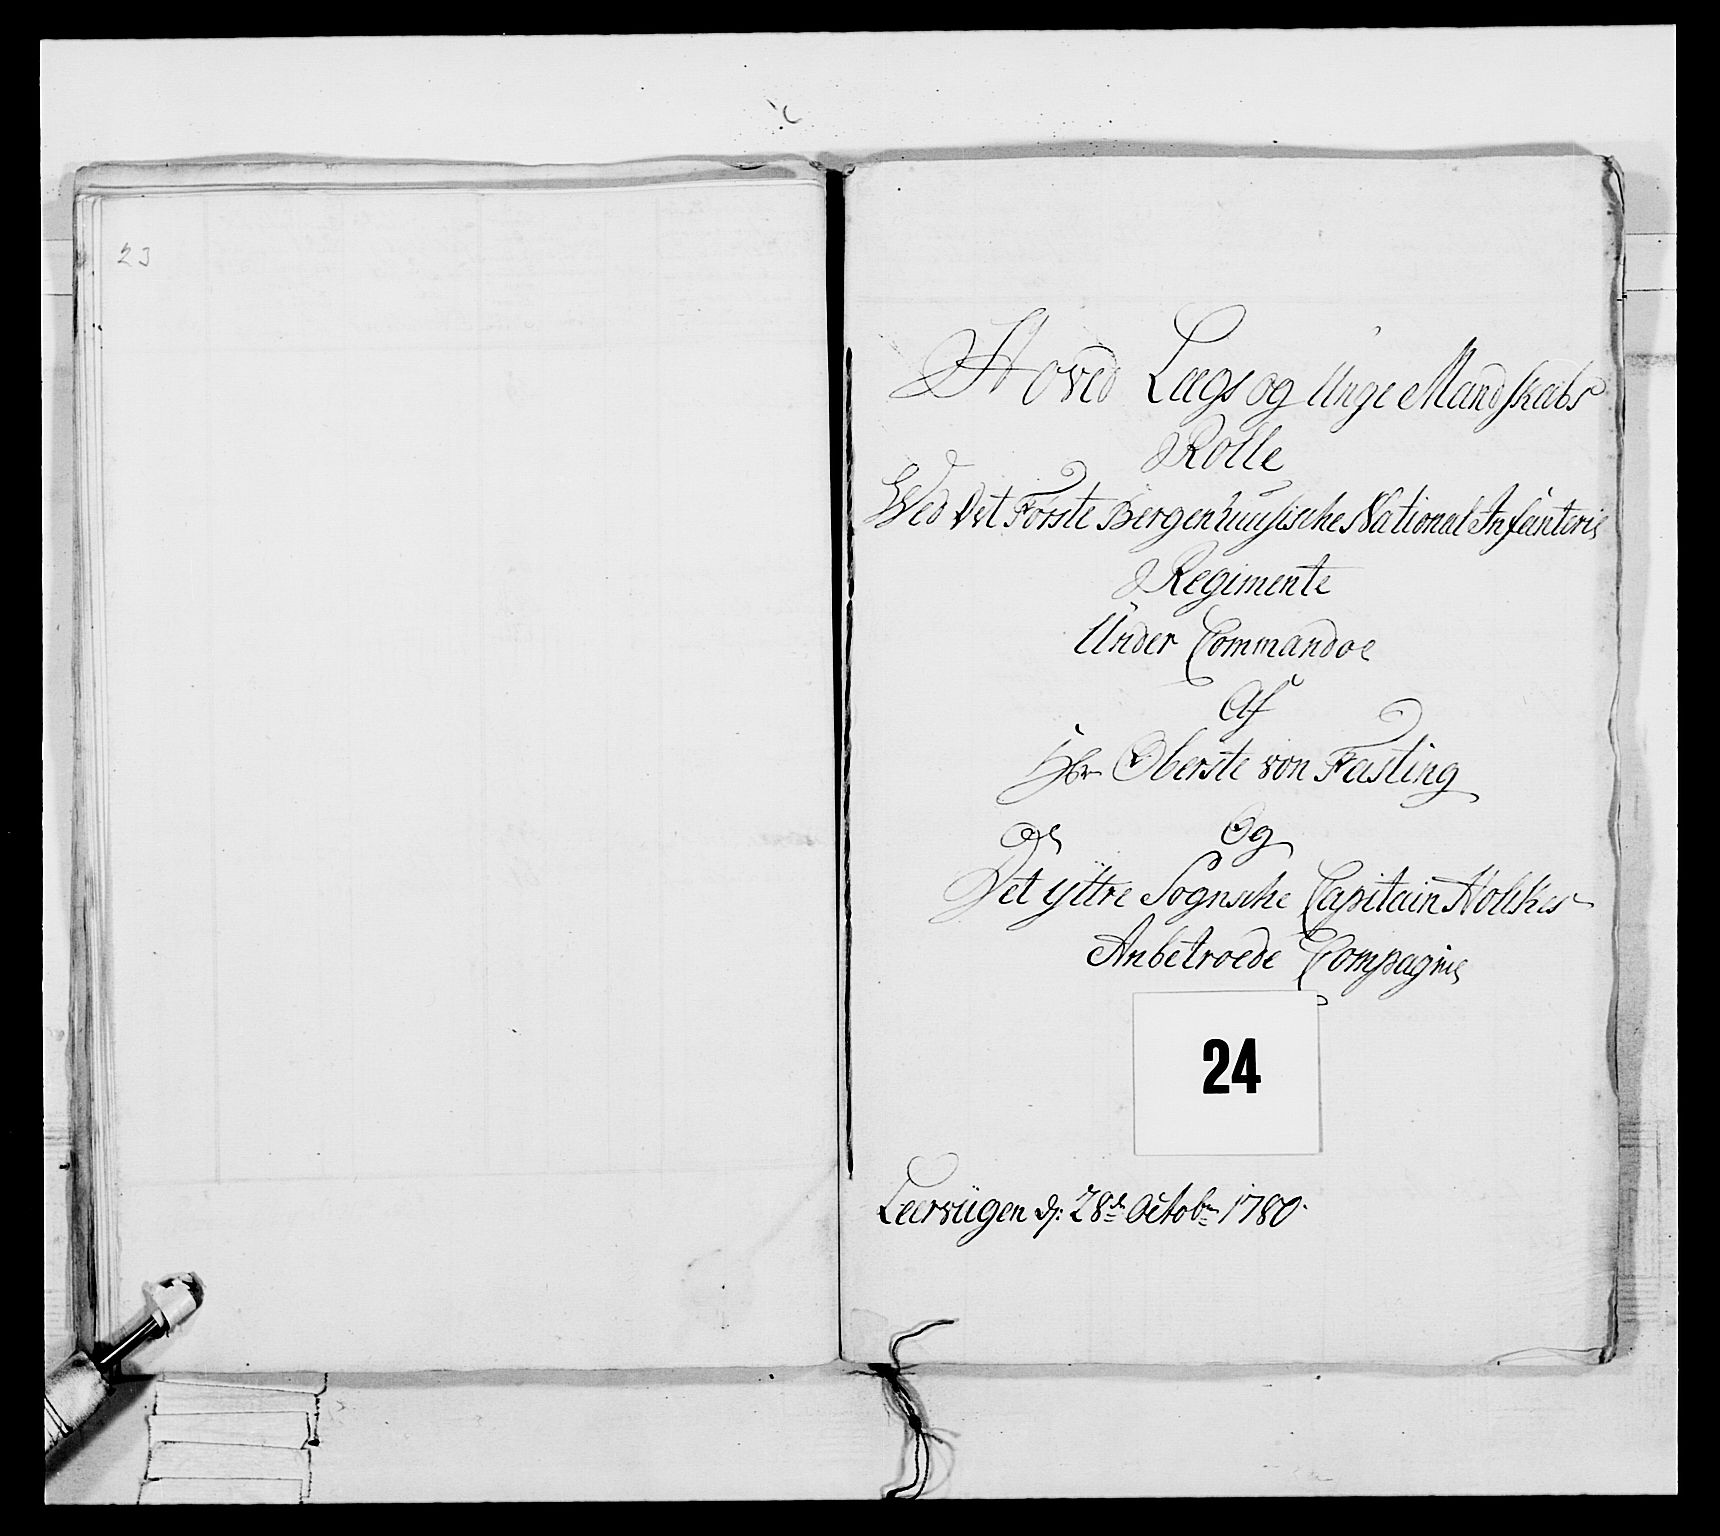 23
Hoved Lægs og Unge Mandskabs
Rolle
Wed Det Förste Bergenhuusische National Infanterie
Regimente
Under Commandoe
Af
Hr Oberste von Fasting
Og
Det yttre Sognsche Capitain Holckes
Anbetroede Compagnie
24
Leervügen d: 28de Octobr 1780.